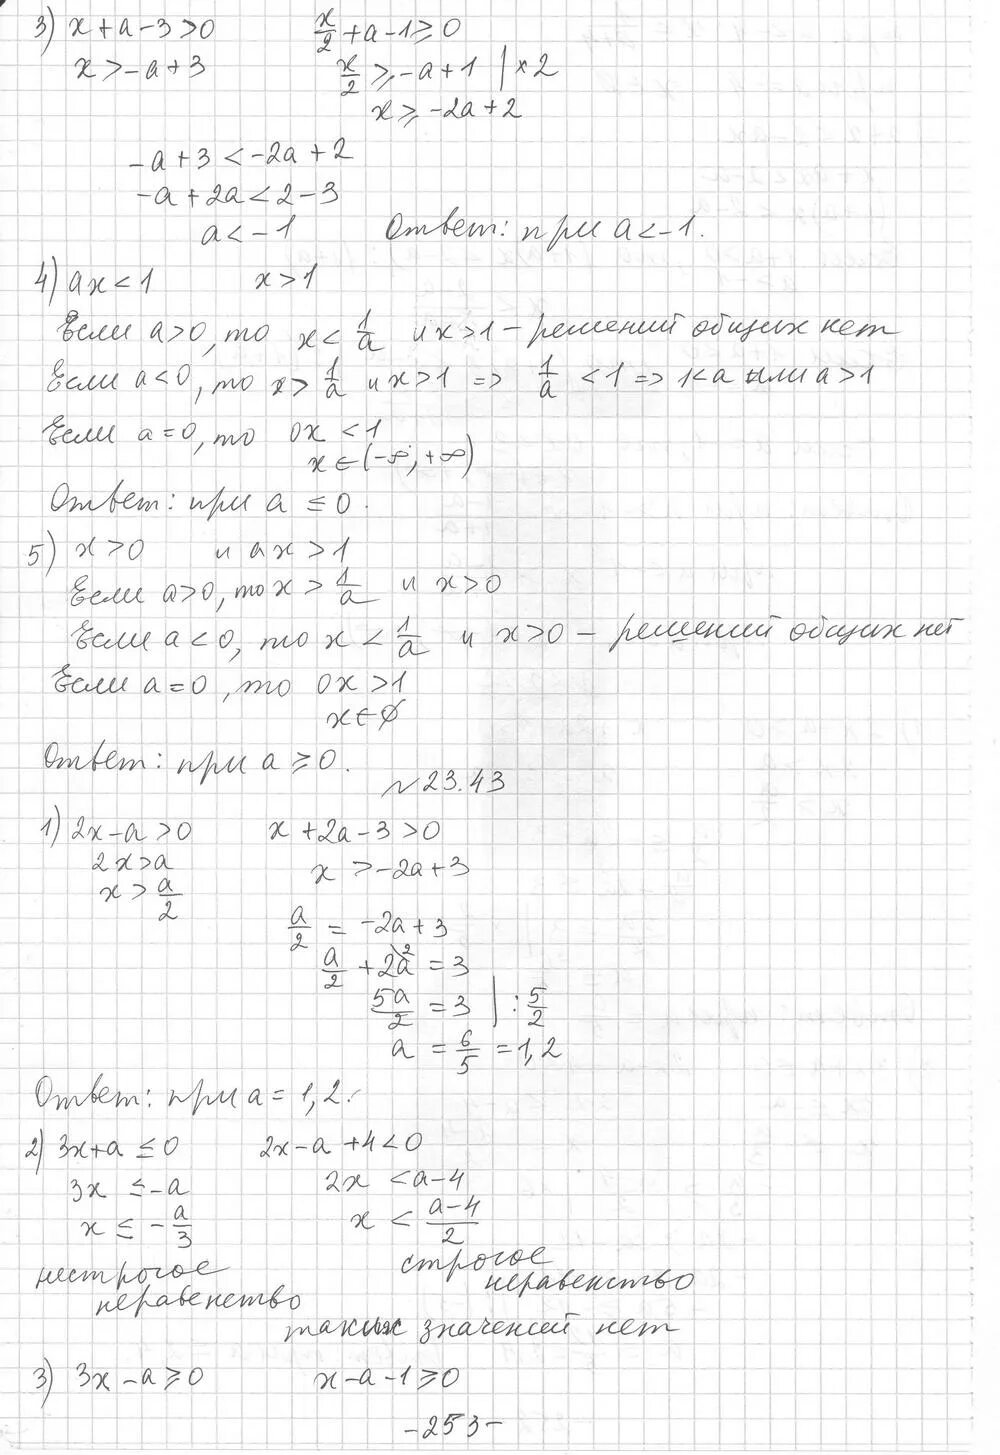 3) x+a-3>0   x/2+a-1≥0
x>-a+3   x/2 ≥-a+1 |×2
x≥-2a+2
-a+3<-2a+2
-a+2a<2-3
a<-1   Ответ: при a<-1.
4) ax<1   x>1
Если a>0, то x<1/a и x>1 - решений общих нет
Если a<0, то x>1/a и x>1 => 1/a <1 => 1<a или a>1
Если a=0, то 0x<1
x∈(-∞;+∞)
Ответ: при a ≤ 0.
5) x>0   и ax>1
Если a>0, то x>1/a и x>0
Если a<0, то x<1/a и x>0 - решений общих нет
Если a=0, то 0x>1
x∈∅
Ответ: при a ≥0.
№23.43
1) 2x-a>0   x+2a-3>0
2x>a   x>-2a+3
x>a/2
a/2 = -2a+3
a/2 +2a\2 =3
5a/2 =3 |:5/2
a =6/5 =1,2
Ответ: при a=1,2.
2) 3x+a≤0   2x-a+4<0
3x ≤-a   2x <a-4
x ≤ -a/3   x < a-4/2
нестрогое   строгое
неравенство   неравенство
таких значений нет
3) 3x-a≥0   x-a-1≥0
-253-